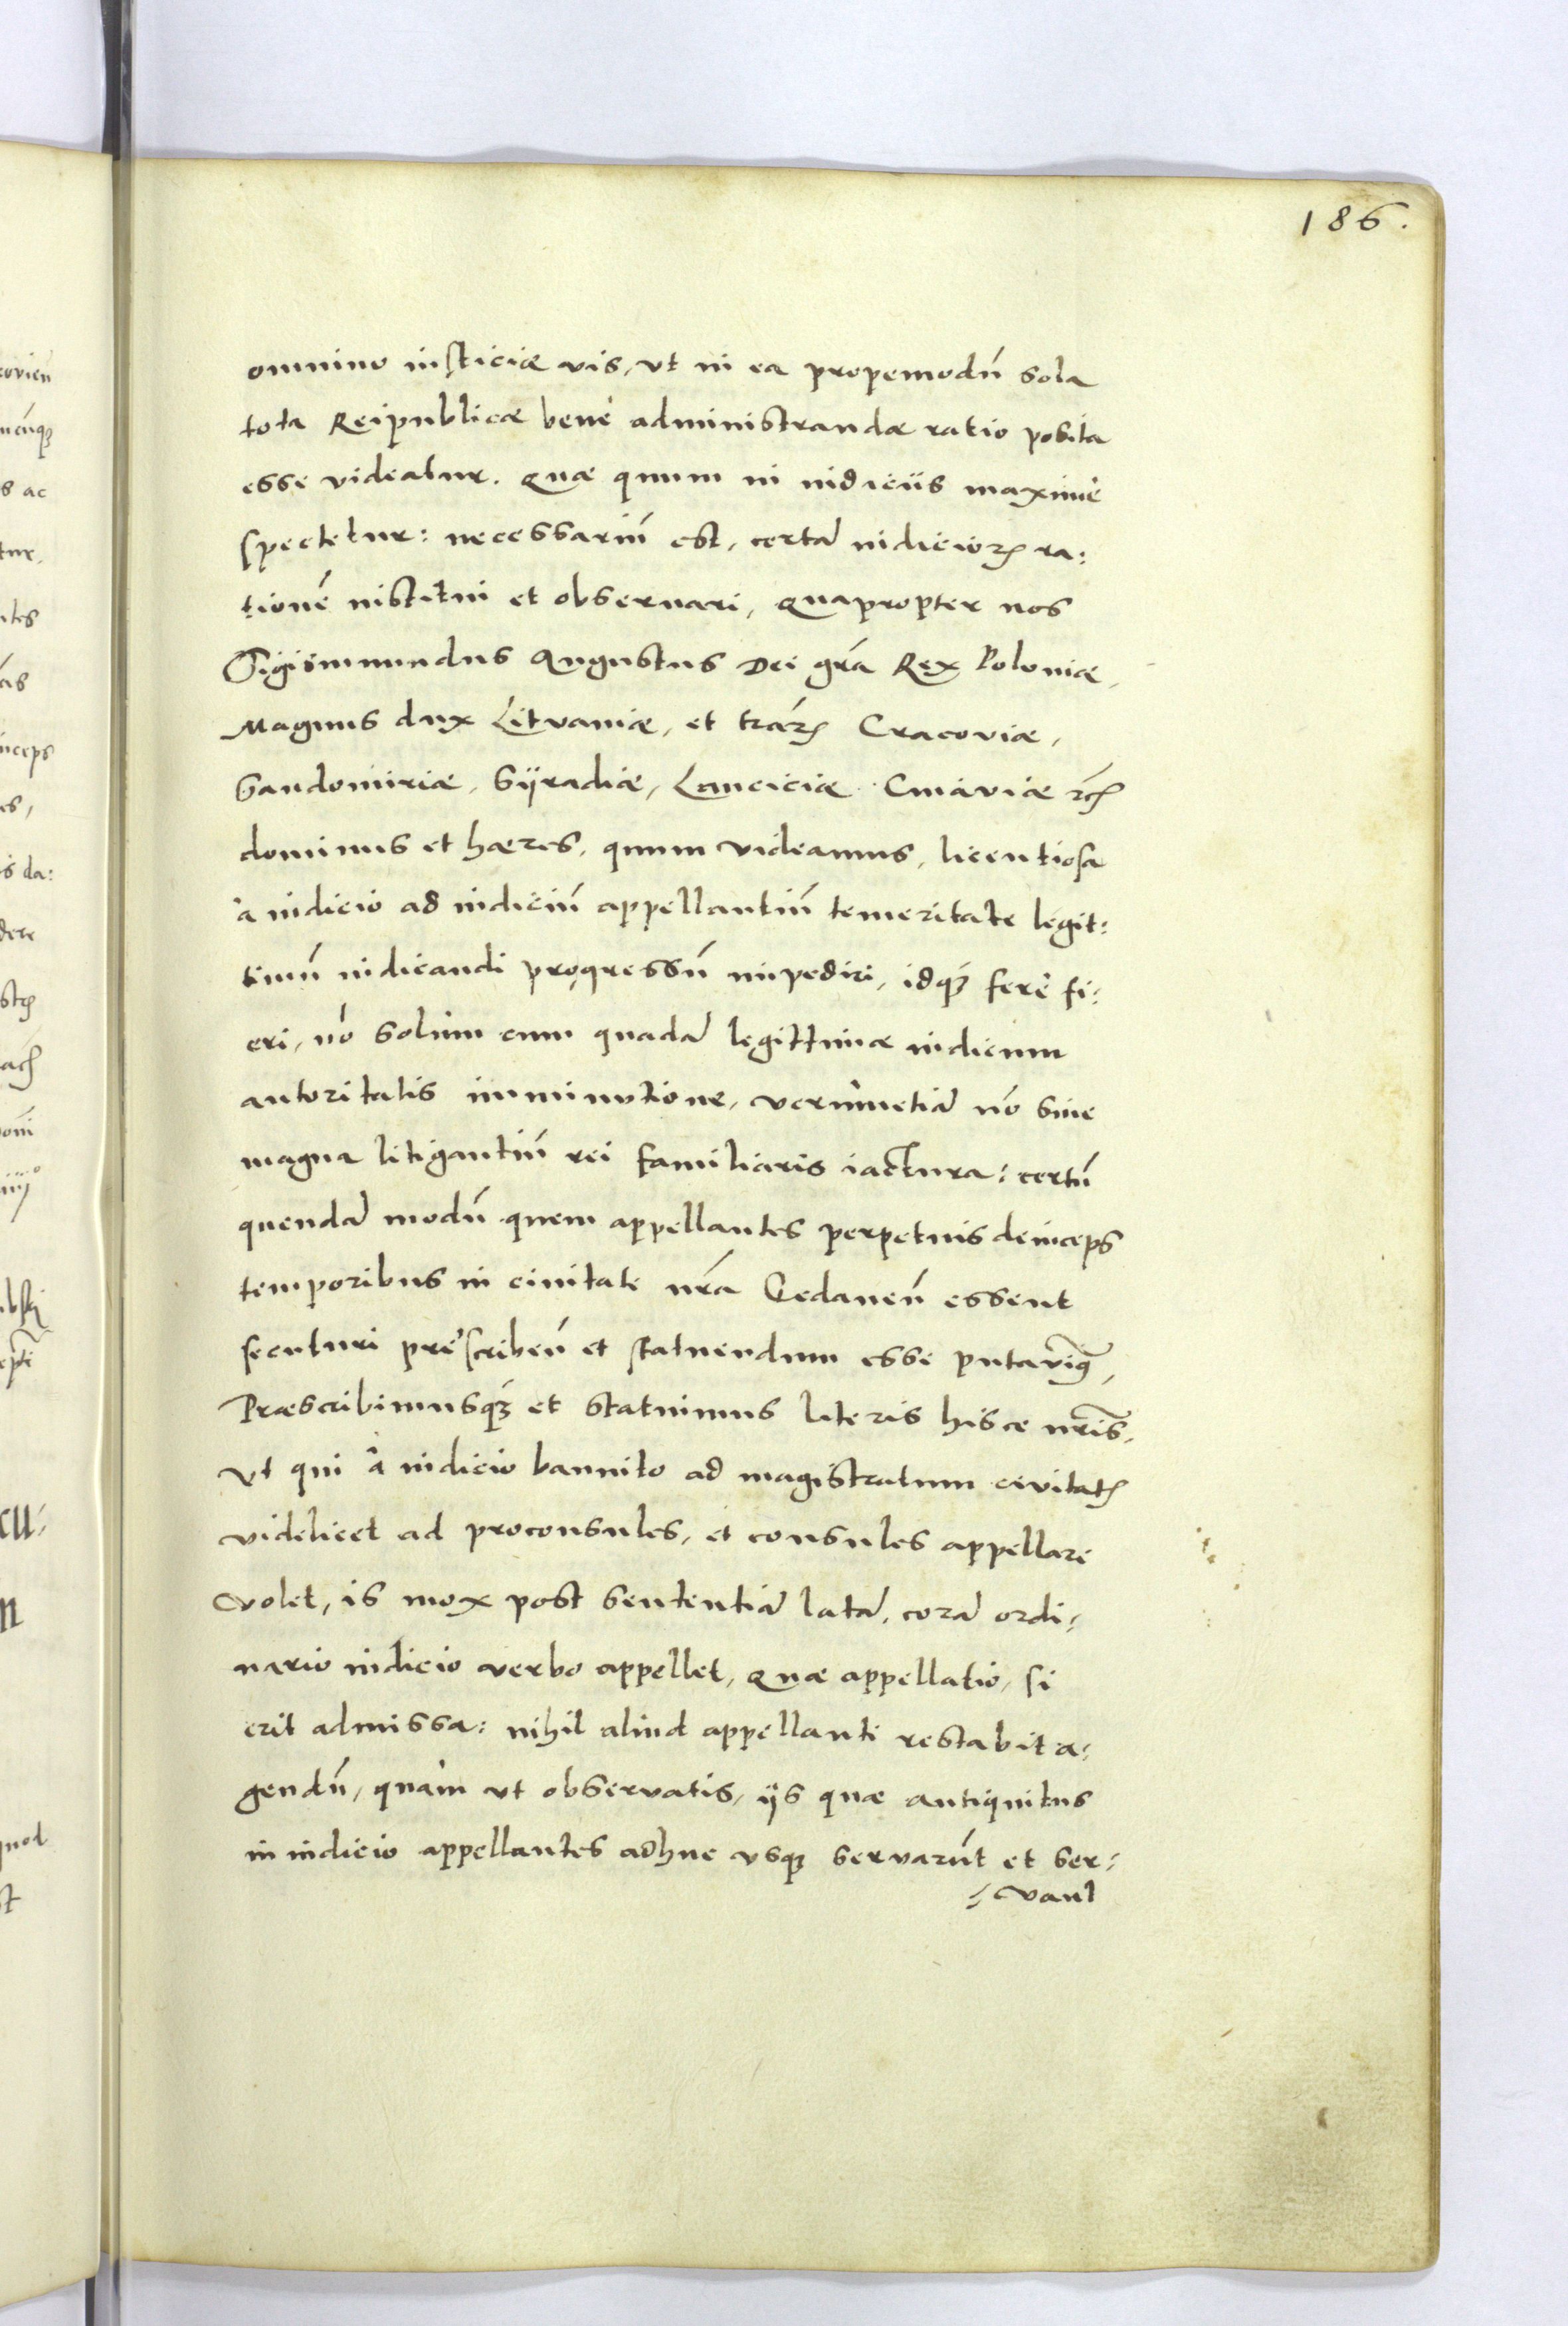 186.
omnino iusticiæ vis, vt in ea propemodū sola
tota Reipublicæ benè administrandæ ratio posita
esse videatur. Quæ quum in iudiciis maximè
spectetur: necessariū est, certā iudicioꝝ ra:
tionē institui et obseruari, Quapropter nos
Sigismundus Augustus Dei gr̄a Rex Poloniæ,
Magnus dux Lituaniæ, et trāꝝ Cracoviæ,
Sandomiriæ, Syradiæ, Lanciciæ Cuiaviæ ꝛcꝭ
dominus et hæres, quum videamus, licentiosa
à iudicio ad iudiciū appellantiū temeritate legit:
timū iudicandi progressū impediri, idqꝫ ferè fi:
eri, nō solùm cum quadā legittimæ iudicum
autoritatis imminutione, verùmetiā nō sine
magna litigantiū rei familiaris iactura: certū
quendā modū quem appellantes perpetuis deinceps
temporibus in ciuitate nr̄a Gedaneñ essent
secuturi prescribeñ et statuendum esse putaviꝰ,
Præscribimusqꝫ et statuimus literis hisce nr̄is,
Vt qui à iudicio bannito ad magistratum civitatꝭ
videlicet ad proconsules, et consules appellare
volet, is mox post sententiā latā, corā ordi:
nario iudicio verbo appellet, Quæ appellatio, si
erit admissa: nihil aliud appellanti restabit a:
gendū, quàm vt observatis, ijs quæ antiquitus
in iudicio appellantes adhuc vsqꝫ servarūt et ser:
: vant